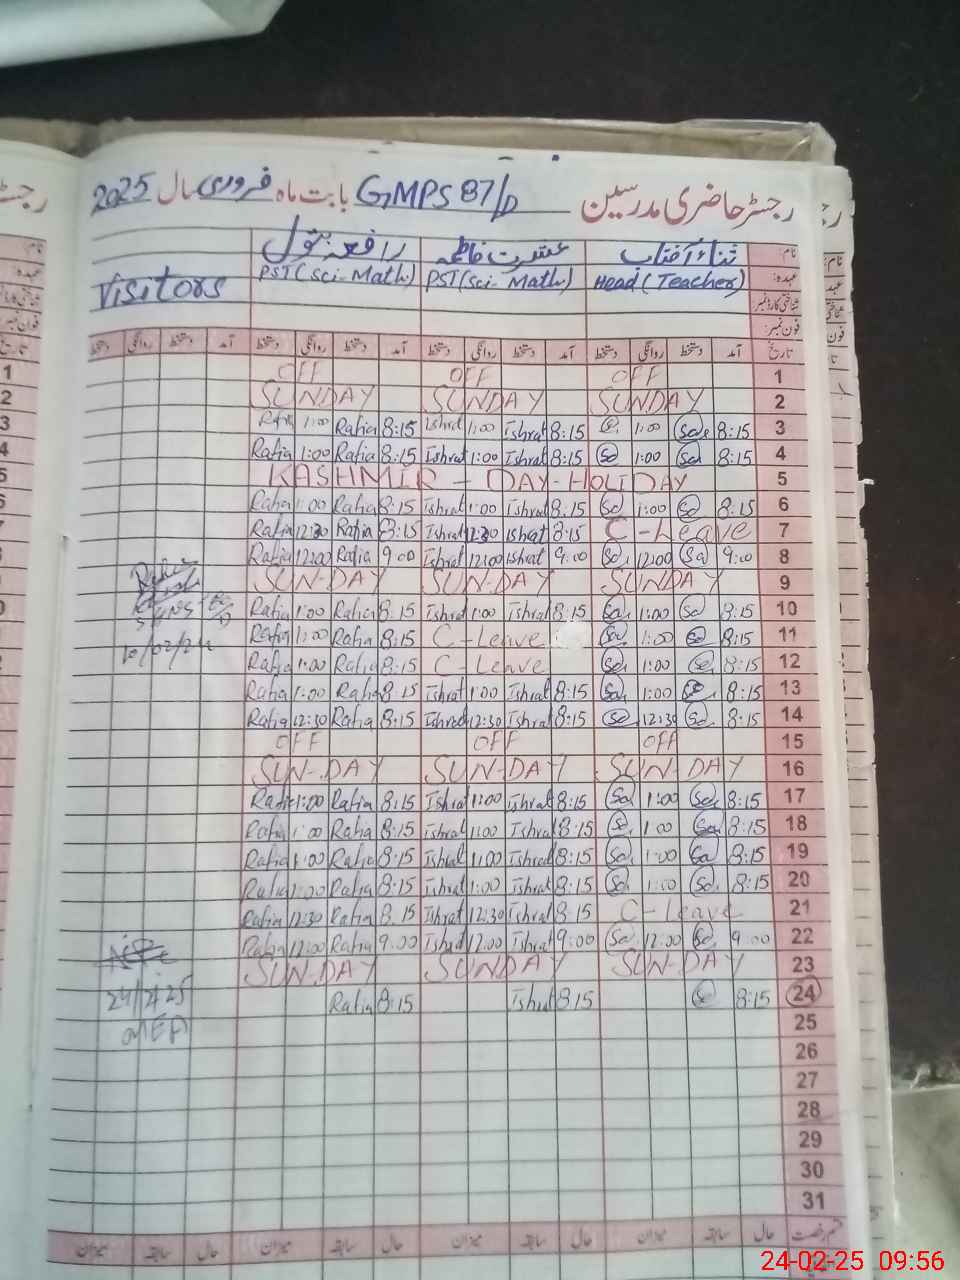 رجسٹر حاضری مدرسین GMPS 87/D بابت ماہ فروری سال 2025
نام: ثناء آفتاب عشرت فاطمہ رافعہ بتول
عہدہ: Head (Teacher) PST (Sci-Math) PST (Sci-Math) Visitors
شناختی کارڈ نمبر:
فون نمبر:
تاریخ آمد دستخط روانگی دستخط آمد دستخط روانگی دستخط آمد دستخط روانگی دستخط آمد دستخط روانگی دستخط
OFF OFF OFF 1
SUNDAY SUNDAY SUNDAY 2
Rafia 1:00 Rafia 8:15 Ishrat 1:00 Ishrat 8:15 1:00 8:15 3
Rafia 1:00 Rafia 8:15 Ishrat 1:00 Ishrat 8:15 1:00 8:15 4
KASHMIR - DAY - HOLIDAY 5
Rafia 1:00 Rafia 8:15 Ishrat 1:00 Ishrat 8:15 1:00 8:15 6
Rafia 12:30 Rafia 8:15 Ishrat 12:30 Ishrat 8:15 C-Leave 7
Rafia 12:00 Rafia 9:00 Ishrat 12:00 Ishrat 9:00 12:00 9:00 8
SUN-DAY SUN-DAY SUNDAY 9
Rafia 1:00 Rafia 8:15 Ishrat 1:00 Ishrat 8:15 1:00 8:15 10
Rafia 1:00 Rafia 8:15 C-Leave 1:00 8:15 11
Rafia 1:00 Rafia 8:15 C-Leave 1:00 8:15 12
Rafia 1:00 Rafia 8:15 Ishrat 1:00 Ishrat 8:15 1:00 8:15 13
Rafia 12:30 Rafia 8:15 Ishrat 12:30 Ishrat 8:15 12:30 8:15 14
OFF OFF OFF 15
SUN-DAY SUN-DAY SUN-DAY 16
Rafia 1:00 Rafia 8:15 Ishrat 1:00 Ishrat 8:15 1:00 8:15 17
Rafia 1:00 Rafia 8:15 Ishrat 1:00 Ishrat 8:15 1:00 8:15 18
Rafia 1:00 Rafia 8:15 Ishrat 1:00 Ishrat 8:15 1:00 8:15 19
Rafia 1:00 Rafia 8:15 Ishrat 1:00 Ishrat 8:15 1:00 8:15 20
Rafia 12:30 Rafia 8:15 Ishrat 12:30 Ishrat 8:15 C-Leave 21
Rafia 12:00 Rafia 9:00 Ishrat 12:00 Ishrat 9:00 12:00 9:00 22
SUN-DAY SUNDAY SUN-DAY 23
24/2/25 Rafia 8:15 Ishrat 8:15 8:15 24
MEA 25
26
27
28
29
30
31
قسم رخصت حال سابقہ میزان حال سابقہ میزان حال سابقہ میزان حال سابقہ میزان
24-02-25 09:56